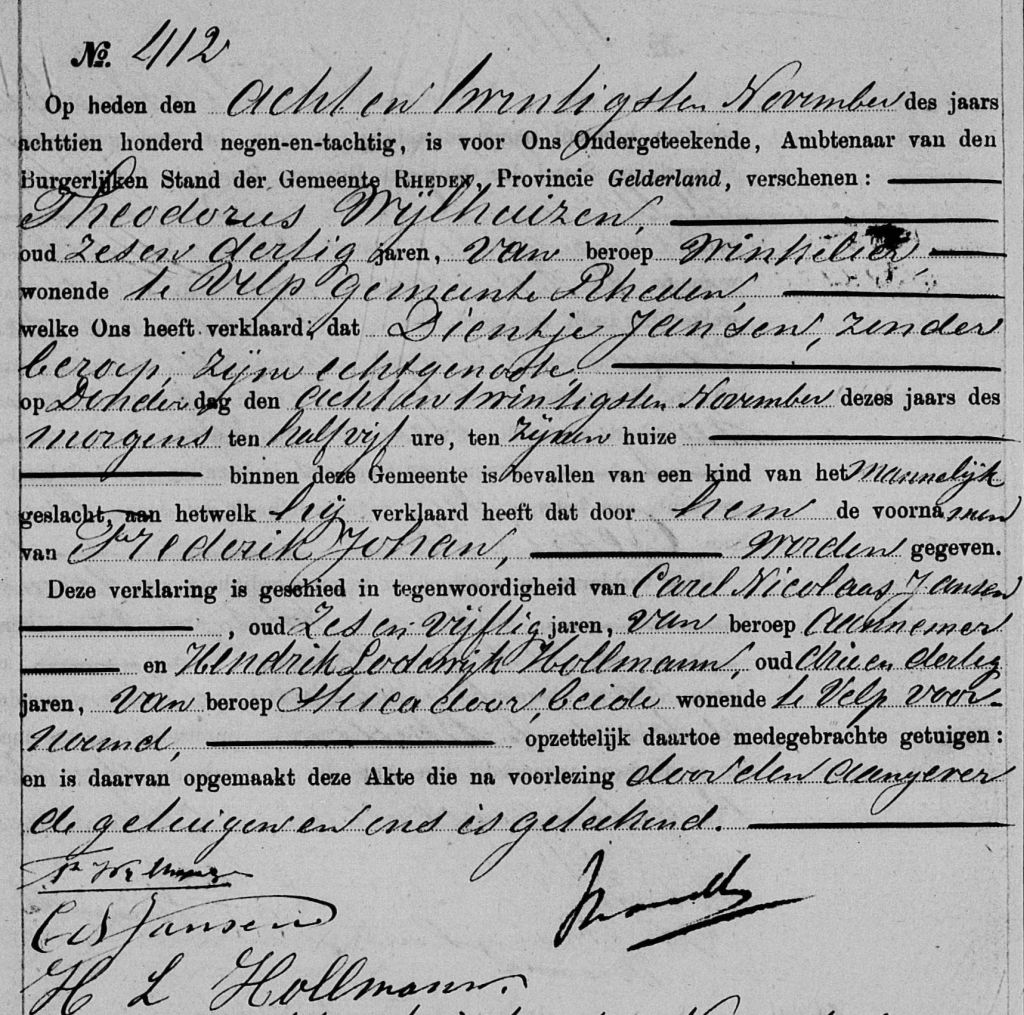 No. 412
Op heden den achtentwintigsten November des jaars
achttien honderd negen-en-tachtig, is voor Ons Ondergeteekende, Ambtenaar van den
Burgerlijken Stand der Gemeente RHEDEN, Provincie Gelderland, verschenen:
Theodorus Wijlhuizen,
oud zesendertig jaren, van beroep Winkelier,
wonende te Velp gemeente Rheden,
welke Ons heeft verklaard, dat Dientje Jansen, zonder
beroep, zijne echtgenoote,
op Donderdag den achtentwintigsten November dezes jaars des
morgens ten half vijf ure, ten zijnen huize
binnen deze Gemeente is bevallen van een kind van het mannelijk
geslacht, aan hetwelk hij verklaard heeft dat door hem de voornamen
van Frederik Johan, worden gegeven.
Deze verklaring is geschied in tegenwoordigheid van Carel Nicolaas Jansen
, oud zesenvijftig jaren, van beroep aannemer
en Hendrik Lodewijk Hollmann, oud drieendertig
jaren, van beroep Stucadoor, beide wonende te Velp voor-
noemd, opzettelijk daartoe medegebrachte getuigen:
en is daarvan opgemaakt deze Akte die na voorlezing door den aangever
de getuigen en ons is geteekend.
C N Jansen
H L Hollmann.